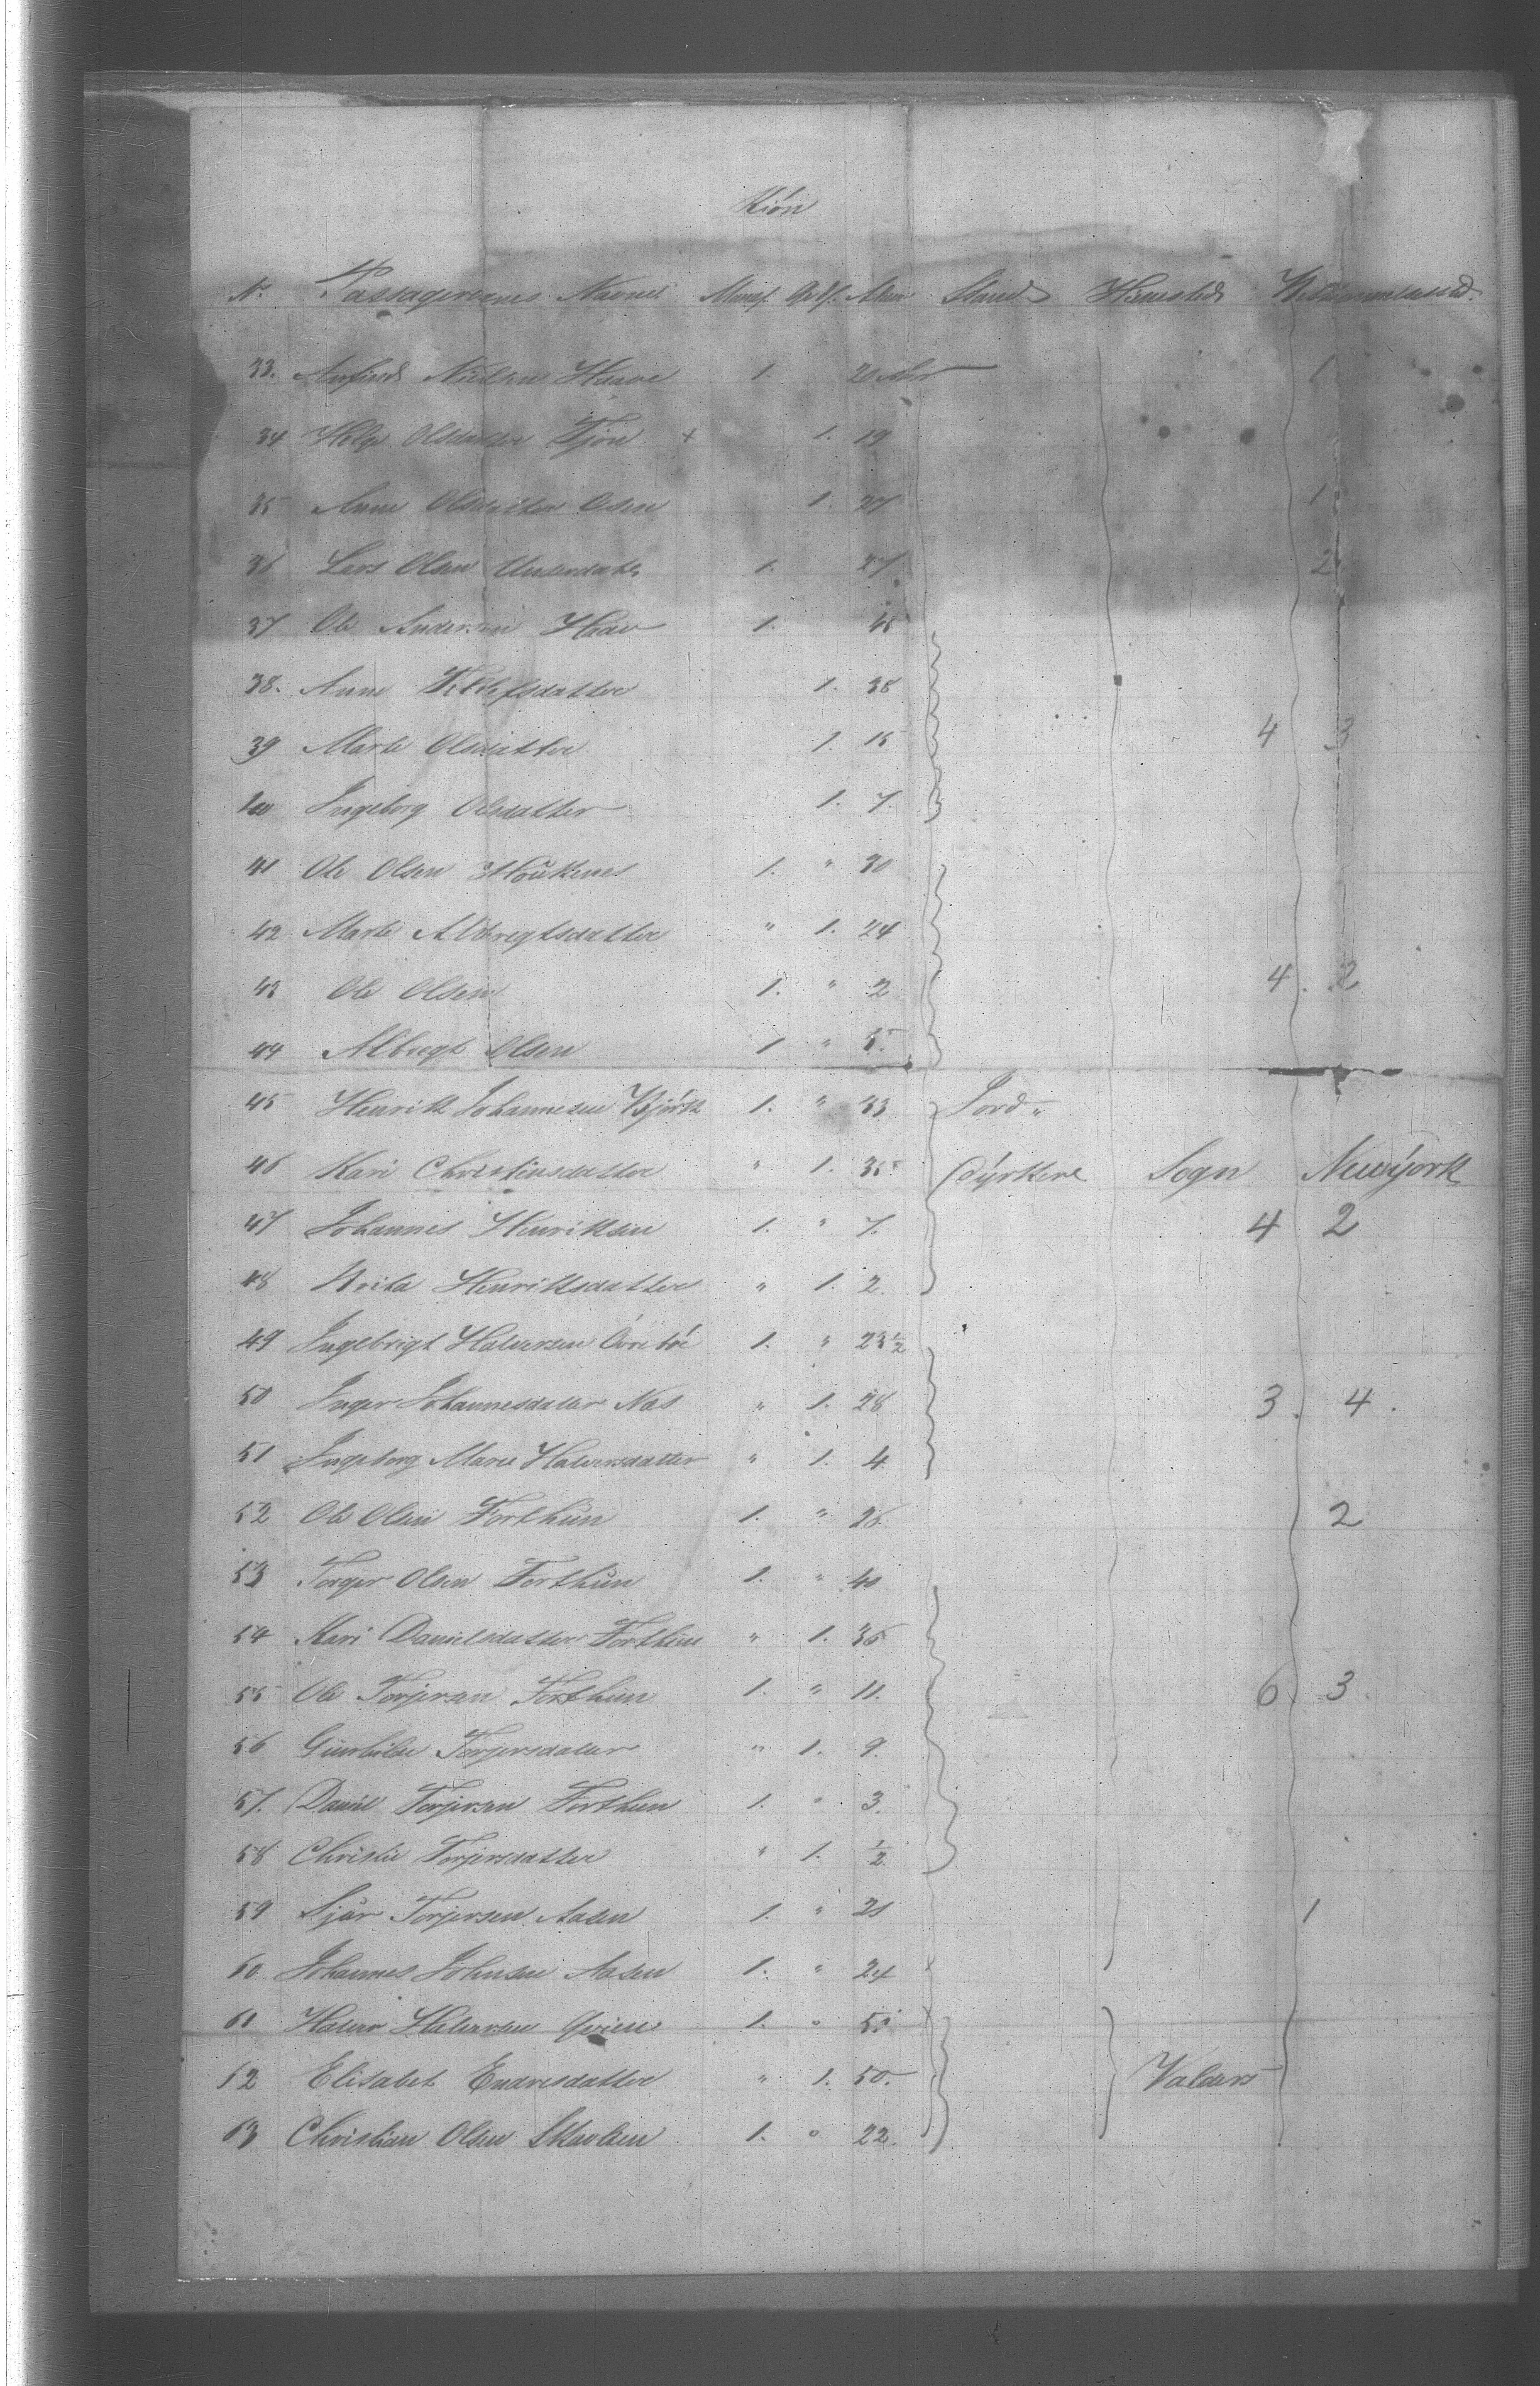 Kiön
No. Passagerernes Navne Mandf. Qvdf. Alder Stand Hiemsted Bestemmelsested
33. Anfind Nielsen Haave 1. 20 Aar 1
34 Helge Olsdatter Tjön + 1. 19
35 Anne Olsdatter Osen 1. 27 1
36 Lars Olsen Underdahl 1. 27. 2
37 Ole Andersen 1. 48
38. Anne datter 1. 38
39 Marte Olsdatter 1. 15 4 3
40 Ingeborg Olsdatter 1. 7.
41 Ole Olsen 1. " 30
42 Marte Albregtsdatter " 1. 24
43 Ole Olsen 1. " 2 4. 2
44 Albregt Olsen 1 " 5.
45 Henrik Johannesen Björk 1. " 33 Jord-
46 Kari Christensdatter " 1. 35 dyrkere Sogn Newyork
47 Johannes Henriksen 1. " 7. 4 2
48 Brita Henriksdatter " 1. 2.
49 Ingebrigt Halvorsen Övrebö 1. " 23 1/2
50 Inger Johannesdatter Næs " 1. 28 3. 4.
51 Ingeborg Marie Halvorsdatter " 1. 4
52 Ole Olsen Forthun 1. " 26. 2
53 Torger Olsen Forthun 1. " 40
54 Kari Danielsdatter Forthun " 1. 36
55 Ole Torjersen Forthun 1. " 11. 6. 3.
56 Gunhilde Torjersdatter " 1. 9.
57. Daniel Torjersen Forthun 1. " 3.
58 Christie Torjersdatter " 1. 1/2
59 Sjur Torjersen Aasen 1. " 20 1
60 Johannes Johnsen Aasen 1. " 24
61 Halvor Halvorsen 1. " 51
62 Elisabet Endresdatter " 1. 50. Valders
63 Christian Olsen 1. " 22.